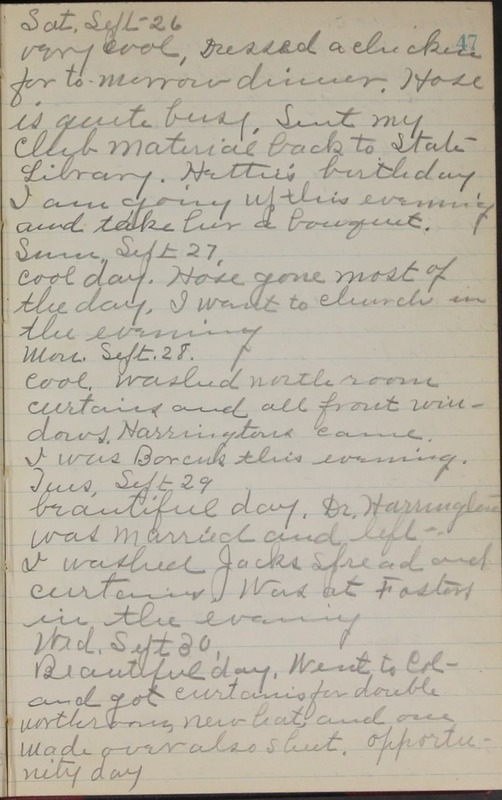 Sat. Sept-26
47
very cool, Dressed a chicken
for to-morrow dinner. Hose
is quite busy. Sent my
Club material back to State
Library. Hattie's birthday
I am going up this evening
and take her a bouquet.
Sun, Sept 27,
cool day. Hose gone most of
the day. I went to church in
the evening
Mon. Sept. 28.
cool. Washed north room
curtains and all front win-
dows. Harringtons came.
I was this evening.
Tues, Sept 29
beautiful day. Dr. Harrington
was married and left-
I washed Jacks spread and
curtains. Was at Fosters
in the evening
Wed. Sept 30,
Beautiful day. Went to Col-
and got curtains for double
north room, new hat and one
made over also suit. opportu-
nity day